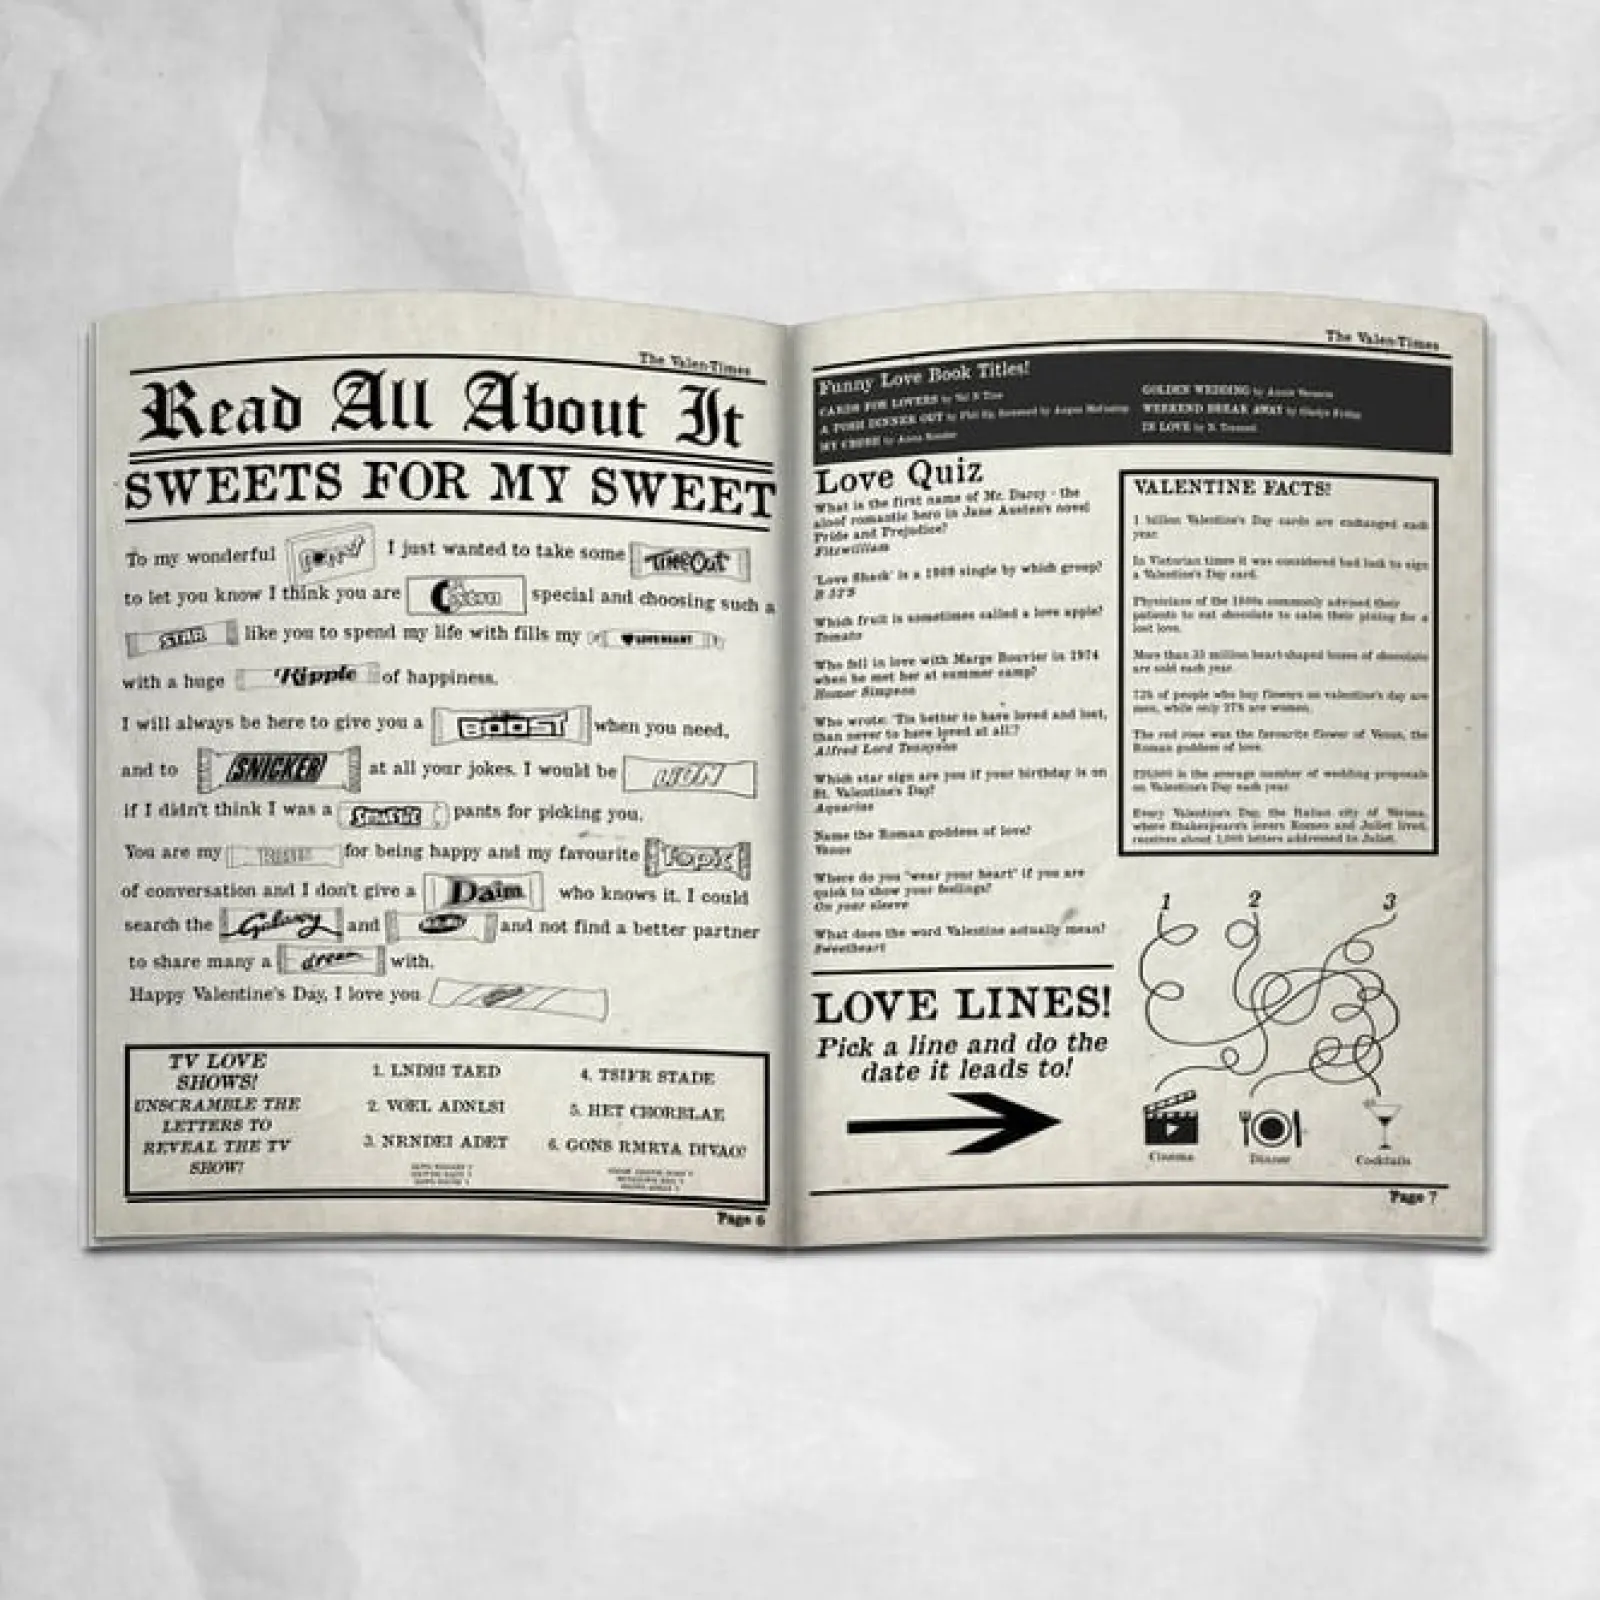 The Valen-Times
Read All About It
SWEETS FOR MY SWEET
To my wonderful I just wanted to take some TimeOut
to let you know I think you are Extra special and choosing such a
STAR like you to spend my life with fills my LOVE HEART
with a huge Ripple of happiness.
I will always be here to give you a BOOST when you need,
and to SNICKER at all your jokes. I would be LION
if I didn't think I was a Smartie pants for picking you.
You are my for being happy and my favourite Topic
of conversation and I don't give a Daim who knows it. I could
search the Galaxy and and not find a better partner
to share many a dream with.
Happy Valentine's Day, I love you
TV LOVE
SHOWS!
UNSCRAMBLE THE
LETTERS TO
REVEAL THE TV
SHOW?
1. LNDBI TAED
2. VOEL ADNLSI
3. NRNDEI ADET
4. TSIFR STADE
5. HET CHORBLAE
6. GONS RMRYA DIVAO?
Page 6
The Valen-Times
Funny Love Book Titles!
CARDS FOR LOVERS by Val N Tine
A POSH DINNER OUT by Phil Up, foreword by Angus
MY CRUSH by
GOLDEN WEDDING by Annie Versaria
WEEKEND BREAK AWAY by Gladys Friday
IN LOVE by
Love Quiz
What is the first name of Mr. Darcy - the
aloof romantic hero in Jane Austen's novel
Pride and Prejudice?
Fitzwilliam
'Love Shack' is a 1989 single by which group?
B 52'S
Which fruit is sometimes called a love apple?
Tomato
Who fell in love with Marge Bouvier in 1974
when he met her at summer camp?
Homer Simpson
Who wrote: 'Tis better to have loved and lost,
than never to have loved at all'?
Alfred Lord Tennyson
Which star sign are you if your birthday is on
St. Valentine's Day?
Aquarius
Name the Roman goddess of love?
Venus
Where do you "wear your heart" if you are
quick to show your feelings?
On your sleeve
What does the word Valentine actually mean?
Sweetheart
VALENTINE FACTS!
1 billion Valentine's Day cards are exchanged each
year.
In Victorian times it was considered bad luck to sign
a Valentine's Day card.
Physicians of the 1800s commonly advised their
patients to eat chocolate to calm their pining for a
lost love.
More than 35 million heart-shaped boxes of chocolate
are sold each year.
73% of people who buy flowers on valentine's day are
men, while only 27% are women.
The red rose was the favourite flower of Venus, the
Roman goddess of love.
220,000 is the average number of wedding proposals
on Valentine's Day each year.
Every Valentine's Day, the Italian city of Verona,
where Shakespeare's lovers Romeo and Juliet lived,
receives about 1,000 letters addressed to Juliet.
LOVE LINES!
Pick a line and do the
date it leads to!
1 2 3
Cinema Dinner Cocktails
Page 7